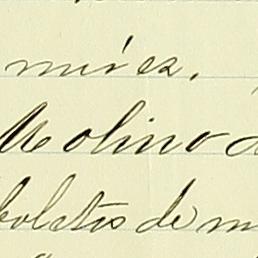 mirez.
Molino d
boletos de m